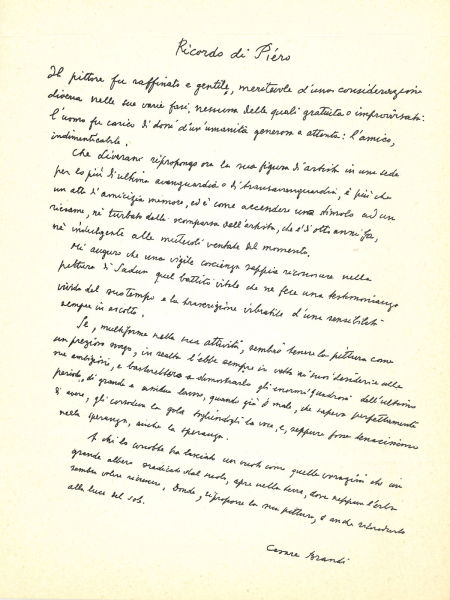 Ricordo di Piéro
Il pittore fu raffinato e gentile, meritevole d'una considerazione
diversa nelle sue varie fasi, nessuna delle quali gratuita o improvvisata:
l'uomo fu carico di doni d'un'umanità generosa e attenta: l'amico,
indimenticabile.
Che riproponga ora la sua figura di artista in una sede
per lo più di ultima avanguardia o di transavanguardia, è più che
un atto d'amicizia memore, ed è come accendere uno ad un
né turbato dalla scomparsa dell'artista, che è di otto anni fa,
né indulgente alle mutevoli ventate del momento.
Mi auguro che una vigile coscienza sappia riconoscere nella
pittura di Sadun quel battito vitale che ne fece una testimonianza
del suo tempo e la trascrizione vibratile d'una sensibilità
sempre in ascolto.
Se, multiforme nella sua attività, sembrò tenere la pittura come
un prezioso svago, in realtà l'ebbe sempre in vetta ai suoi desideri e alle
sue ambizioni, e basterebbero a dimostrarlo gli enormi quadroni dell'ultimo
periodo, di grande e lena, quando già il male, che sapeva perfettamente
di avere, gli corrodeva la gola togliendogli la voce, e, seppure fosse tenacissimo
nella speranza, anche la speranza.
A chi lo conobbe ha lasciato un vuoto come quelle voragini che un
grande albero sradicato dal suolo, apre nella terra, dove neppure l'erba
sembra volere ricrescere. Donde, riproporre la sua pittura, è anche ricondurlo
alla luce del sole.
Cesare Brandi